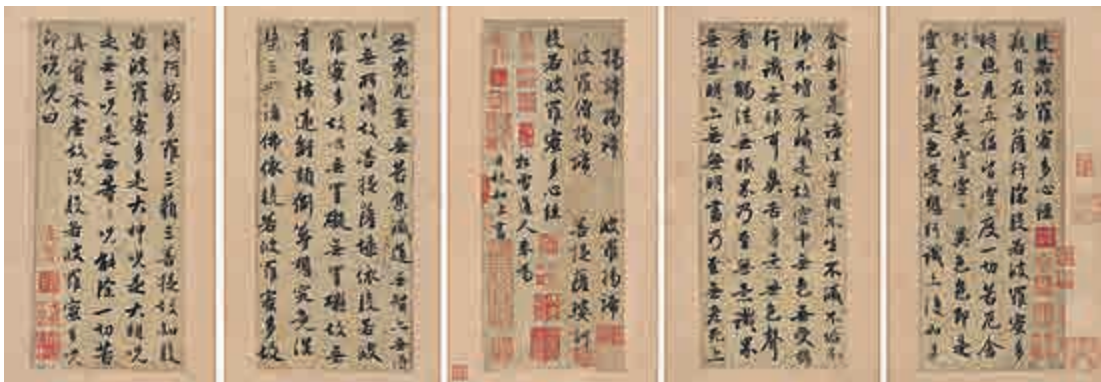 般若波羅蜜多心經
觀自在菩薩行深般若波羅蜜多
時照見五蘊皆空度一切苦厄舍
利子色不異空空不異色色即是
空空即是色受想行識亦復如是
舍利子是諸法空相不生不滅不垢不
淨不增不減是故空中無色無受想
行識無眼耳鼻舌身意無色聲
香味觸法無眼界乃至無意識界
無無明亦無無明盡乃至無老死亦
揭諦揭諦 波羅揭諦
波羅僧揭諦 菩提薩婆訶
般若波羅蜜多心經
松雪道人奉為
日林和上書
無老死盡無苦集滅道無智亦無得
以無所得故菩提薩埵依般若波
羅蜜多故心無罣礙無罣礙故無
有恐怖遠離顛倒夢想究竟涅
槃三世諸佛依般若波羅蜜多故
得阿耨多羅三藐三菩提故知般
若波羅蜜多是大神呪是大明呪
是無上呪是無等〻呪能除一切苦
真實不虛故說般若波羅蜜多呪
即說呪曰